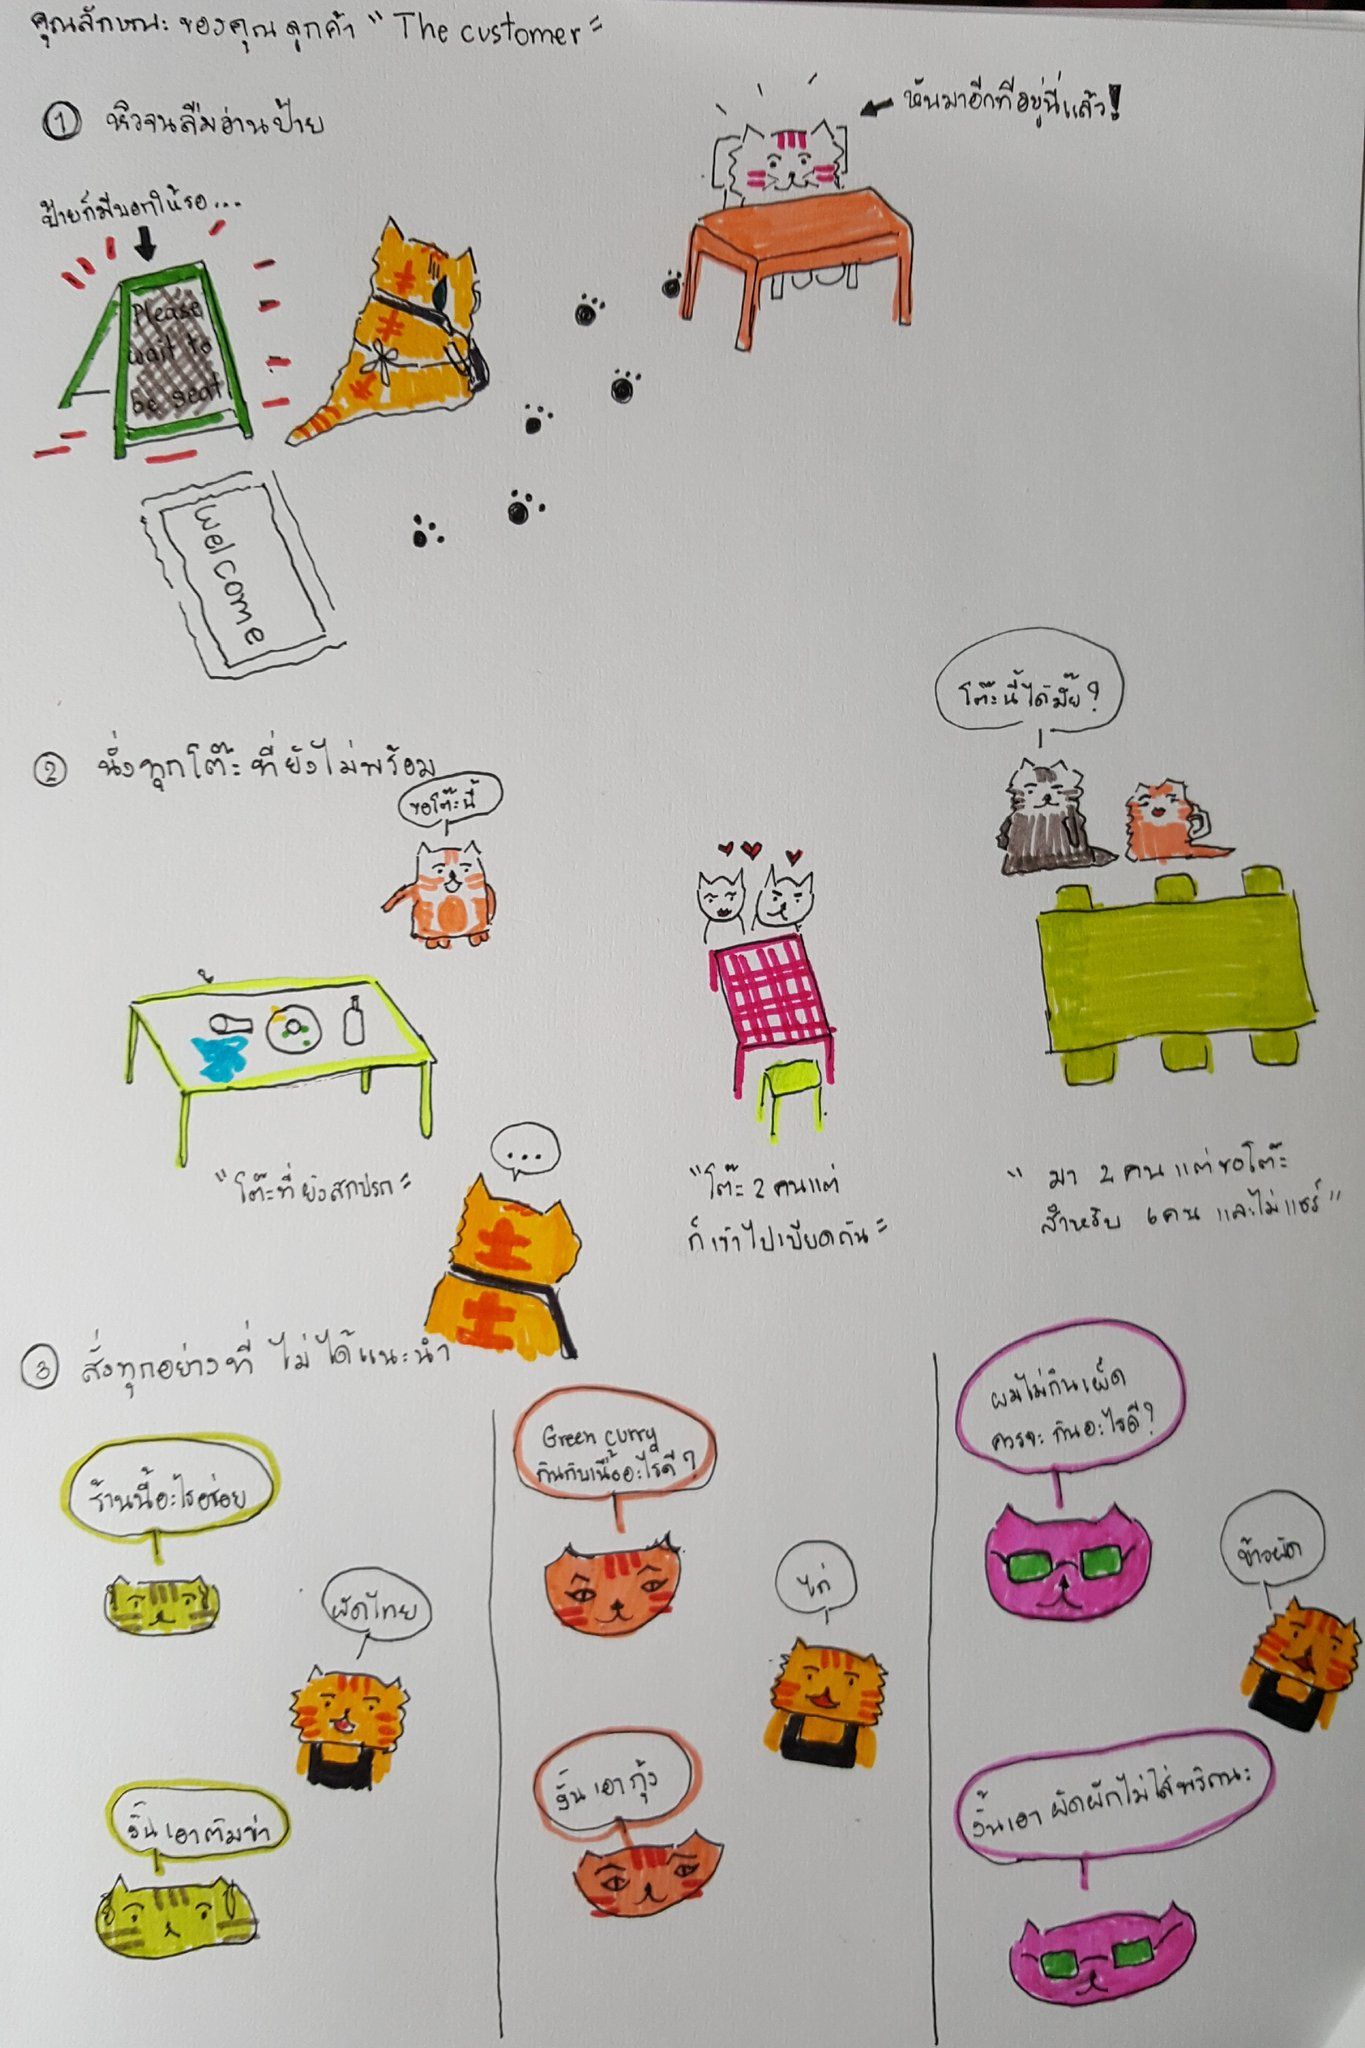 คุณลักษณะของคุณลูกค้า "The customer"
① หิวจนลืมอ่านป้าย
หันมาอีกทีอยู่นี่แล้ว!
ป้ายก็มีบอกให้รอ...
Please
wait to
be seat
Welcome
โต๊ะนี้ได้มั๊ย?
② นั่งทุกโต๊ะที่ยังไม่พร้อม
ขอโต๊ะนี้
...
"โต๊ะที่ยังสกปรก"
"โต๊ะ 2 คนแต่
ก็เข้าไปเบียดกัน"
"มา 2 คนแต่ขอโต๊ะ
สำหรับ 6 คน และไม่แชร์"
③ สั่งทุกอย่างที่ไม่ได้แนะนำ
ร้านนี้อะไรอร่อย
ผัดไทย
งั้นเอาต้มข่า
Green curry
กินกับเนื้ออะไรดี?
ไก่
งั้นเอากุ้ง
ผมไม่กินเผ็ด
ควรจะกินอะไรดี?
ข้าวผัด
งั้นเอาผัดผักไม่ใส่พริกนะ